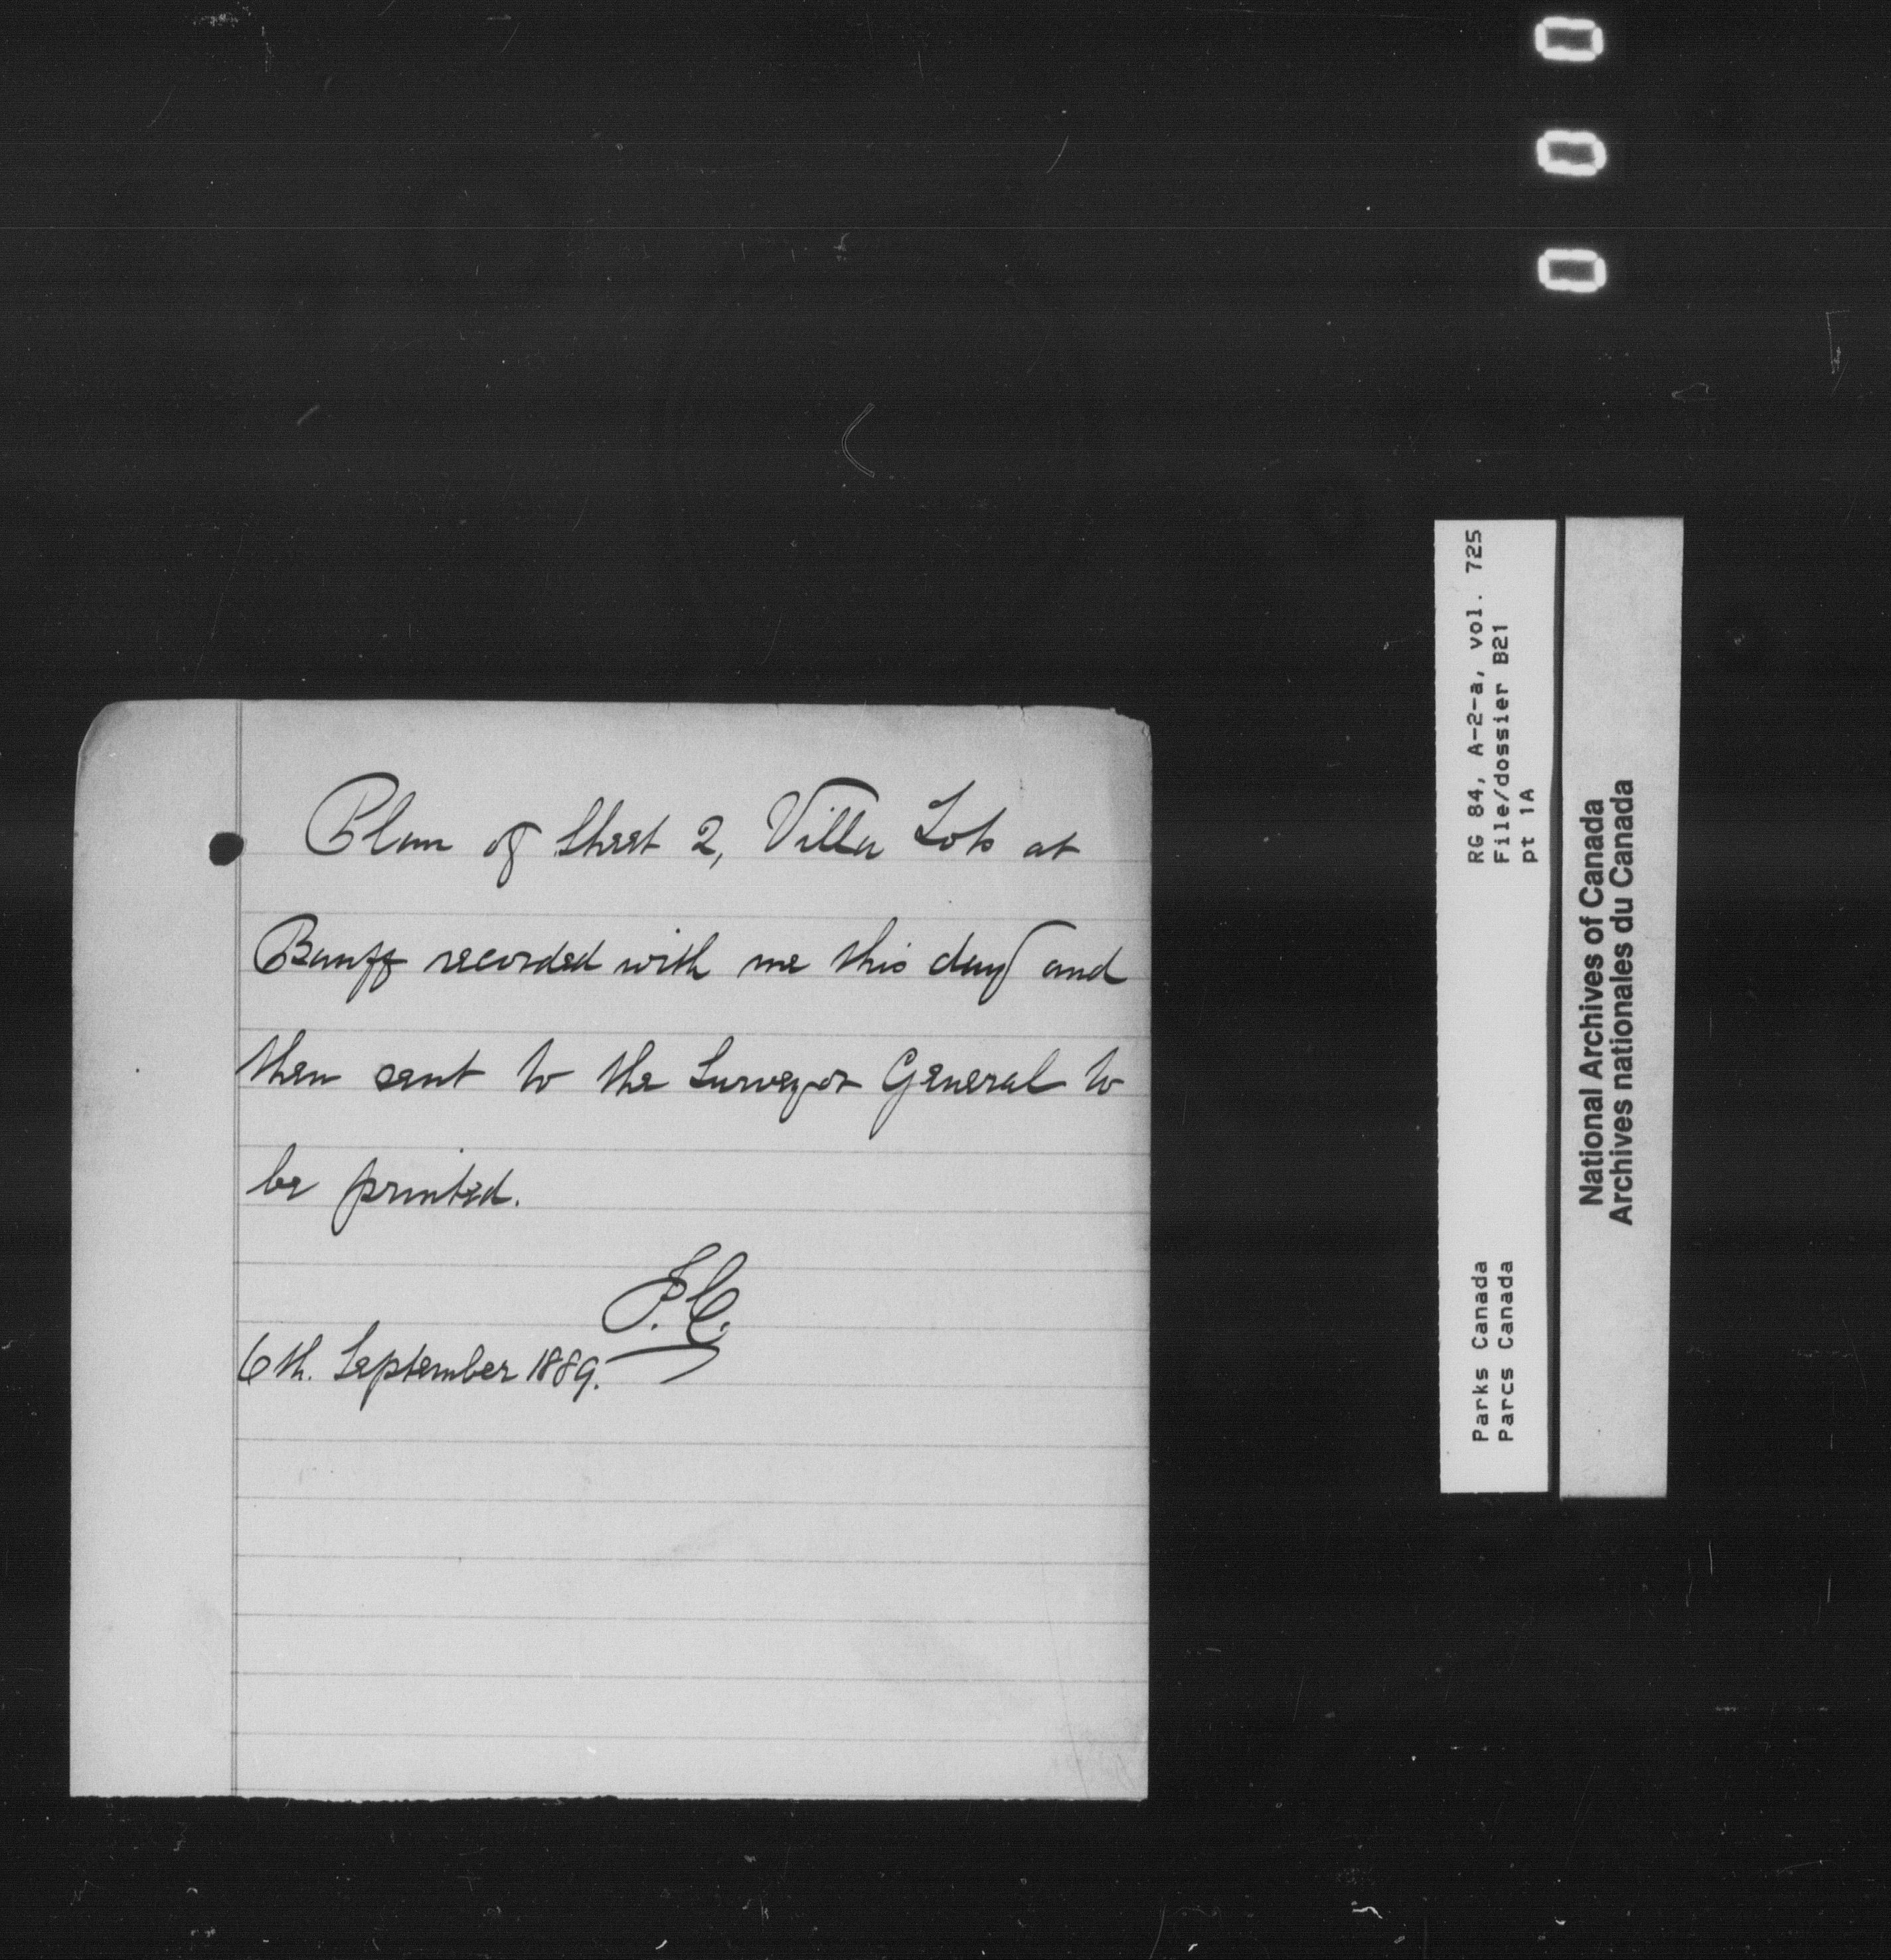 0
0
0
Plan of Sheet 2, Villa Lots at
Banff recorded with me this day and
then sent to the Surveyor General to
be printed.
F.C.
6th. September 1889.
RG 84, A-2-a, vol. 725
File/dossier B21
pt 1A
Parks Canada
Parcs Canada
National Archives of Canada
Archives nationales du Canada